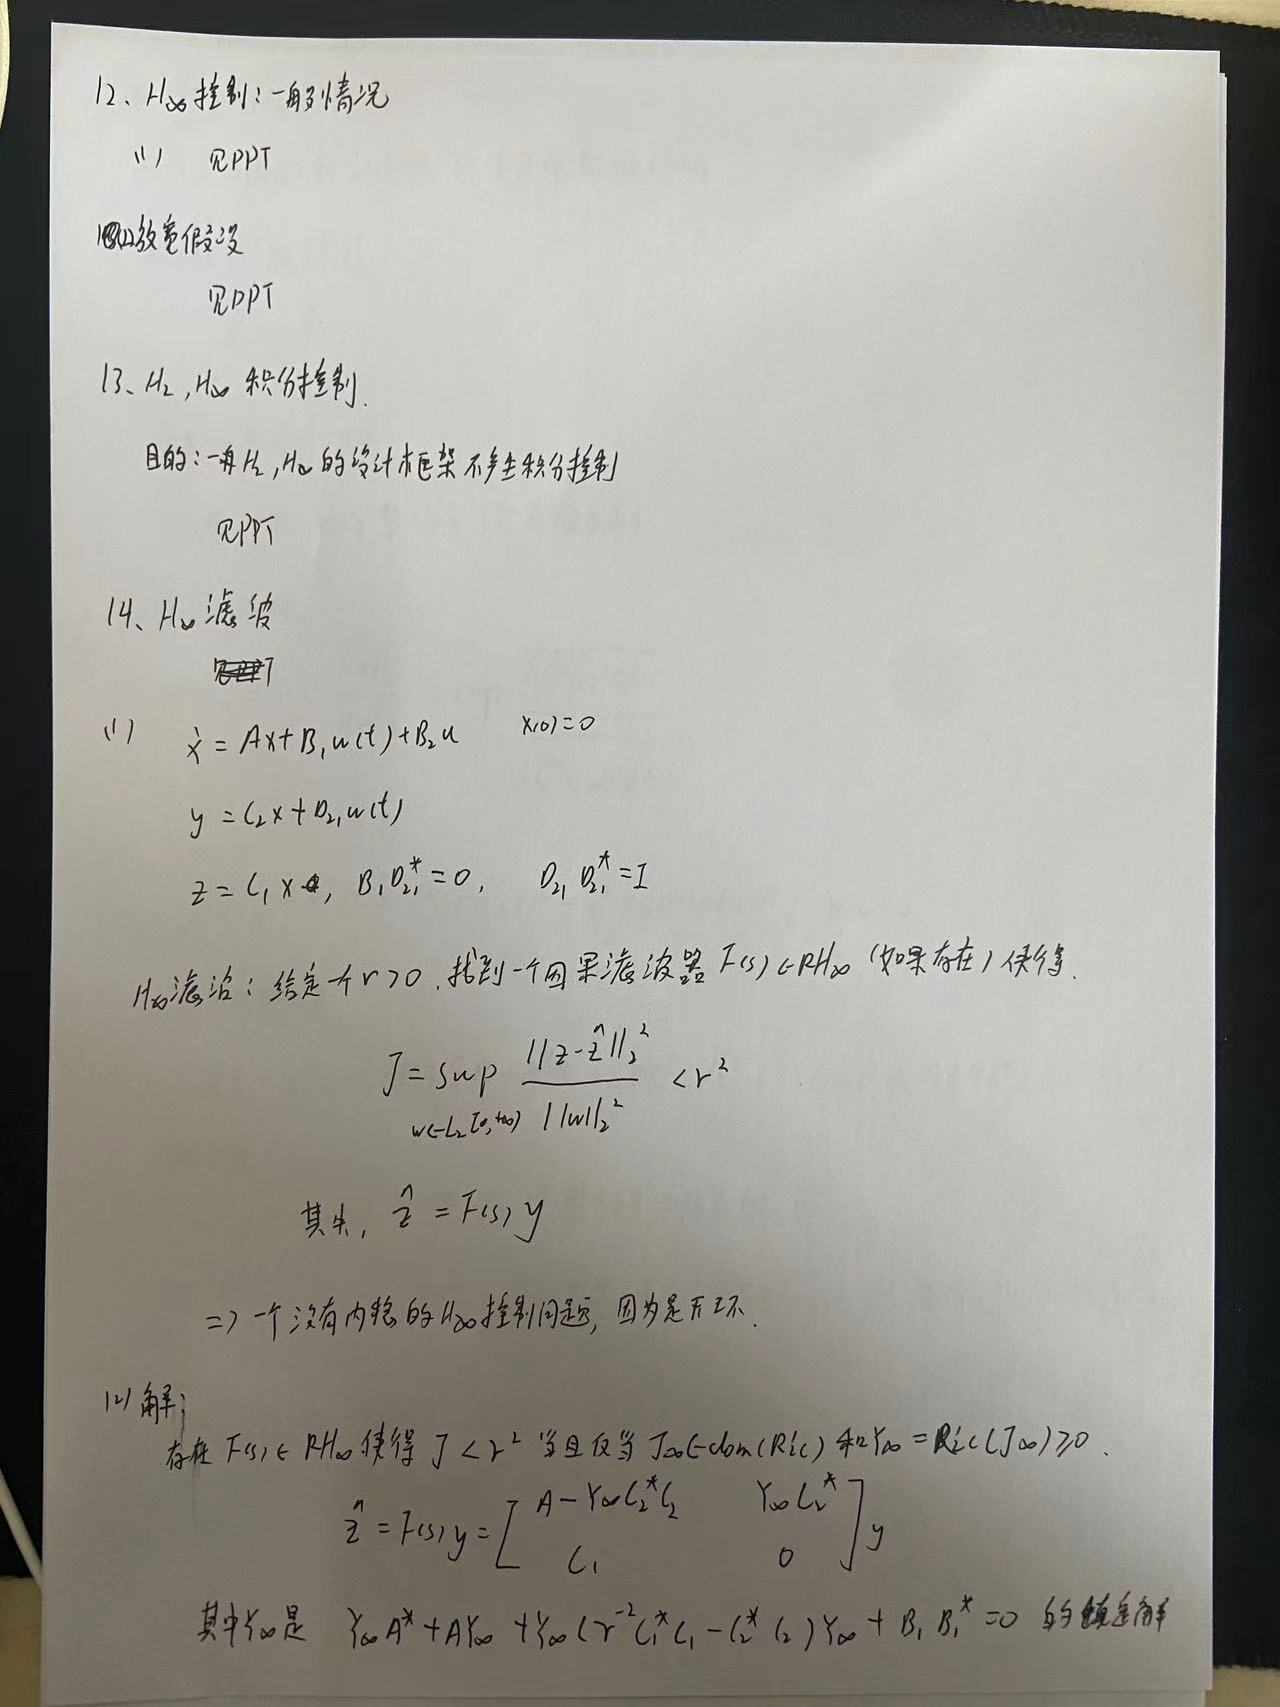 12、H∞控制：一般情况
(1) 见PPT
(2)放宽假设
见PPT
13、H₂,H∞ 积分控制.
目的：一般H₂,H∞的设计框架不产生积分控制
见PPT
14、H∞滤波
(1) ẋ = Ax+B₁w(t)+B₂u x(0)=0
y = C₂x+D₂₁w(t)
z = C₁x , B₁D₂₁* = 0, D₂₁D₂₁* = I
H∞滤波：给定一个r>0.找到一个因果滤波器 F(s)∈RH∞ (如果存在) 使得.
J = sup ||z-ẑ||₂² / ||w||₂² < r²
w∈L₂[0,+∞)
其中, ẑ = F(s)y
=> 一个没有内稳的H∞控制问题, 因为是开环.
(2) 解:
存在 F(s)∈RH∞使得 J < r² 当且仅当 J∞∈dom(Ric) 和 Y∞ = Ric(J∞)≥0.
ẑ = F(s)y = [ A - Y∞C₂*C₂ Y∞C₂* ] y
C₁ 0
其中Y∞是 Y∞A* + AY∞ + Y∞(r⁻²C₁*C₁ - C₂*C₂)Y∞ + B₁B₁* = 0 的镇定解